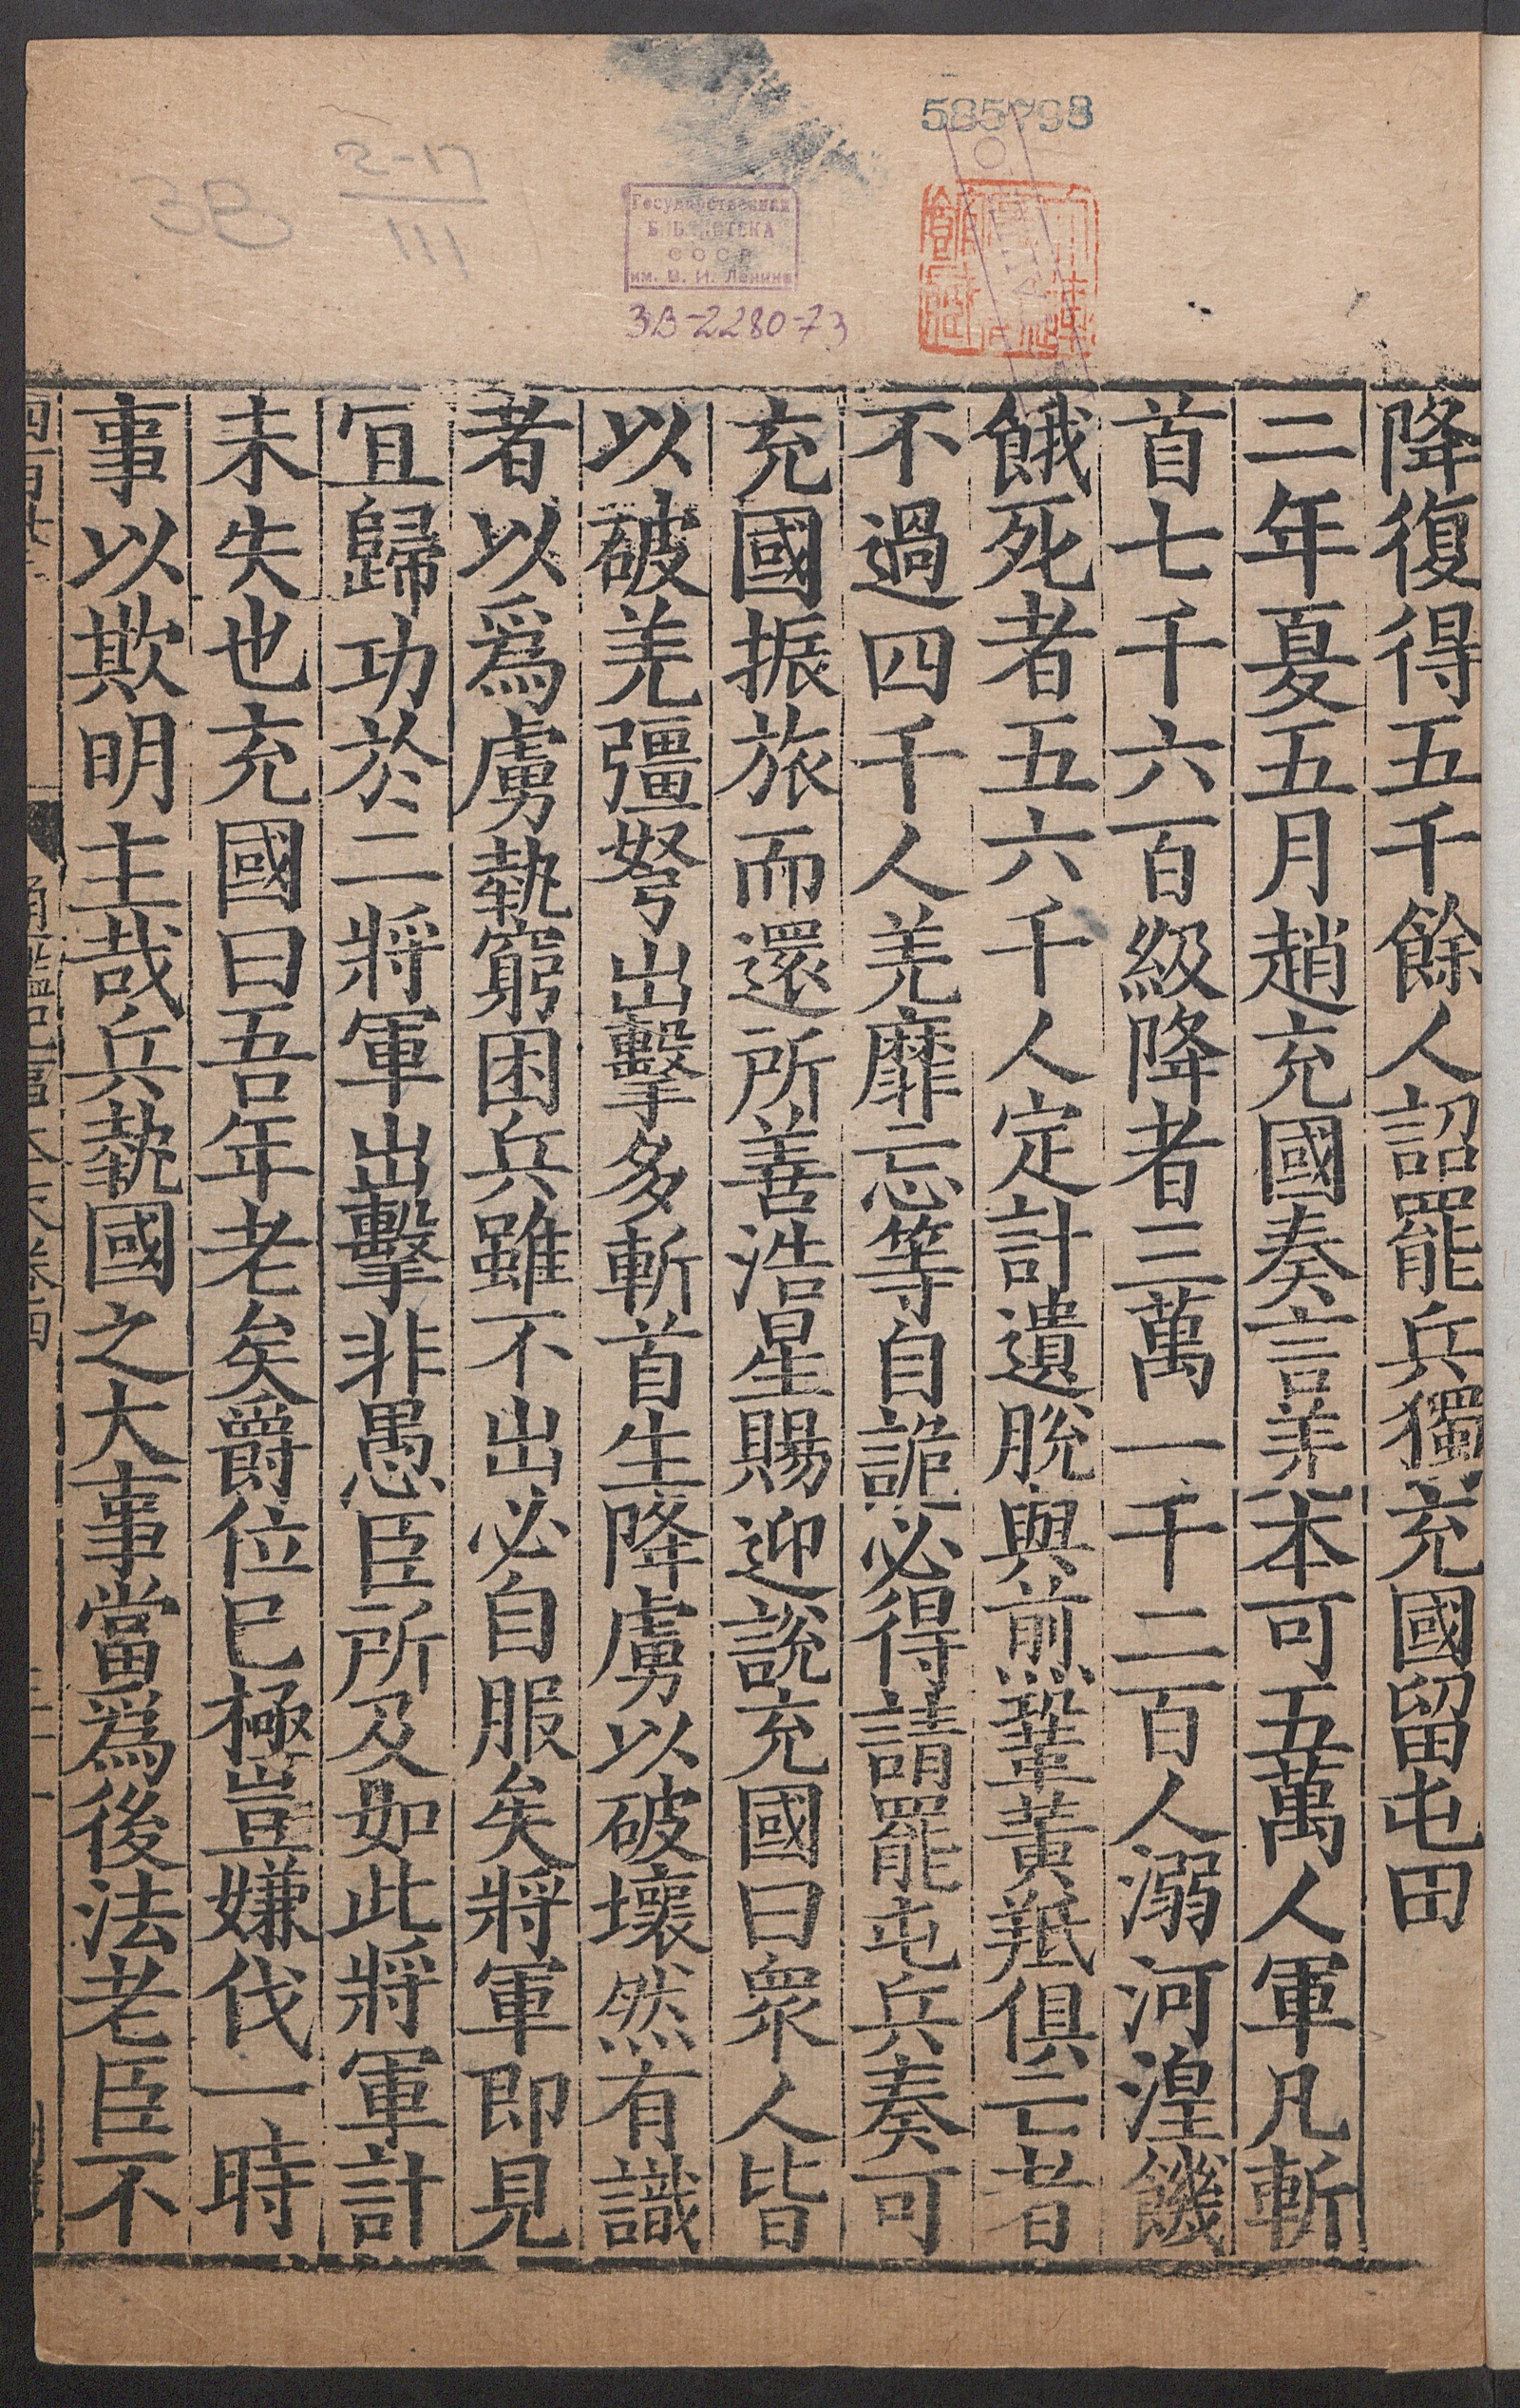 585798
2-17
111
3В
Государственная
БИБЛИОТЕКА
СССР
им. В. И. Ленина
3В-2280-73
降復得五千餘人詔罷兵獨充國留屯田
二年夏五月趙充國奏言羌本可五萬人軍凡斬
首七千六百級降者三萬一千二百人溺河湟饑
餓死者五六千人定計遺脫與煎鞏黃羝俱亡者
不過四千人羌靡忘等自詭必得請罷屯兵奏可
充國振旅而還所善浩星賜迎說充國曰眾人皆
以破羌彊弩出擊多斬首生降虜以破壞然有識
者以爲虜埶窮困兵雖不出必自服矣將軍即見
宜歸功於二將軍出擊非愚臣所及如此將軍計
未失也充國曰吾年老矣爵位已極豈嫌伐一時
事以欺明主哉兵埶國之大事當爲後法老臣不